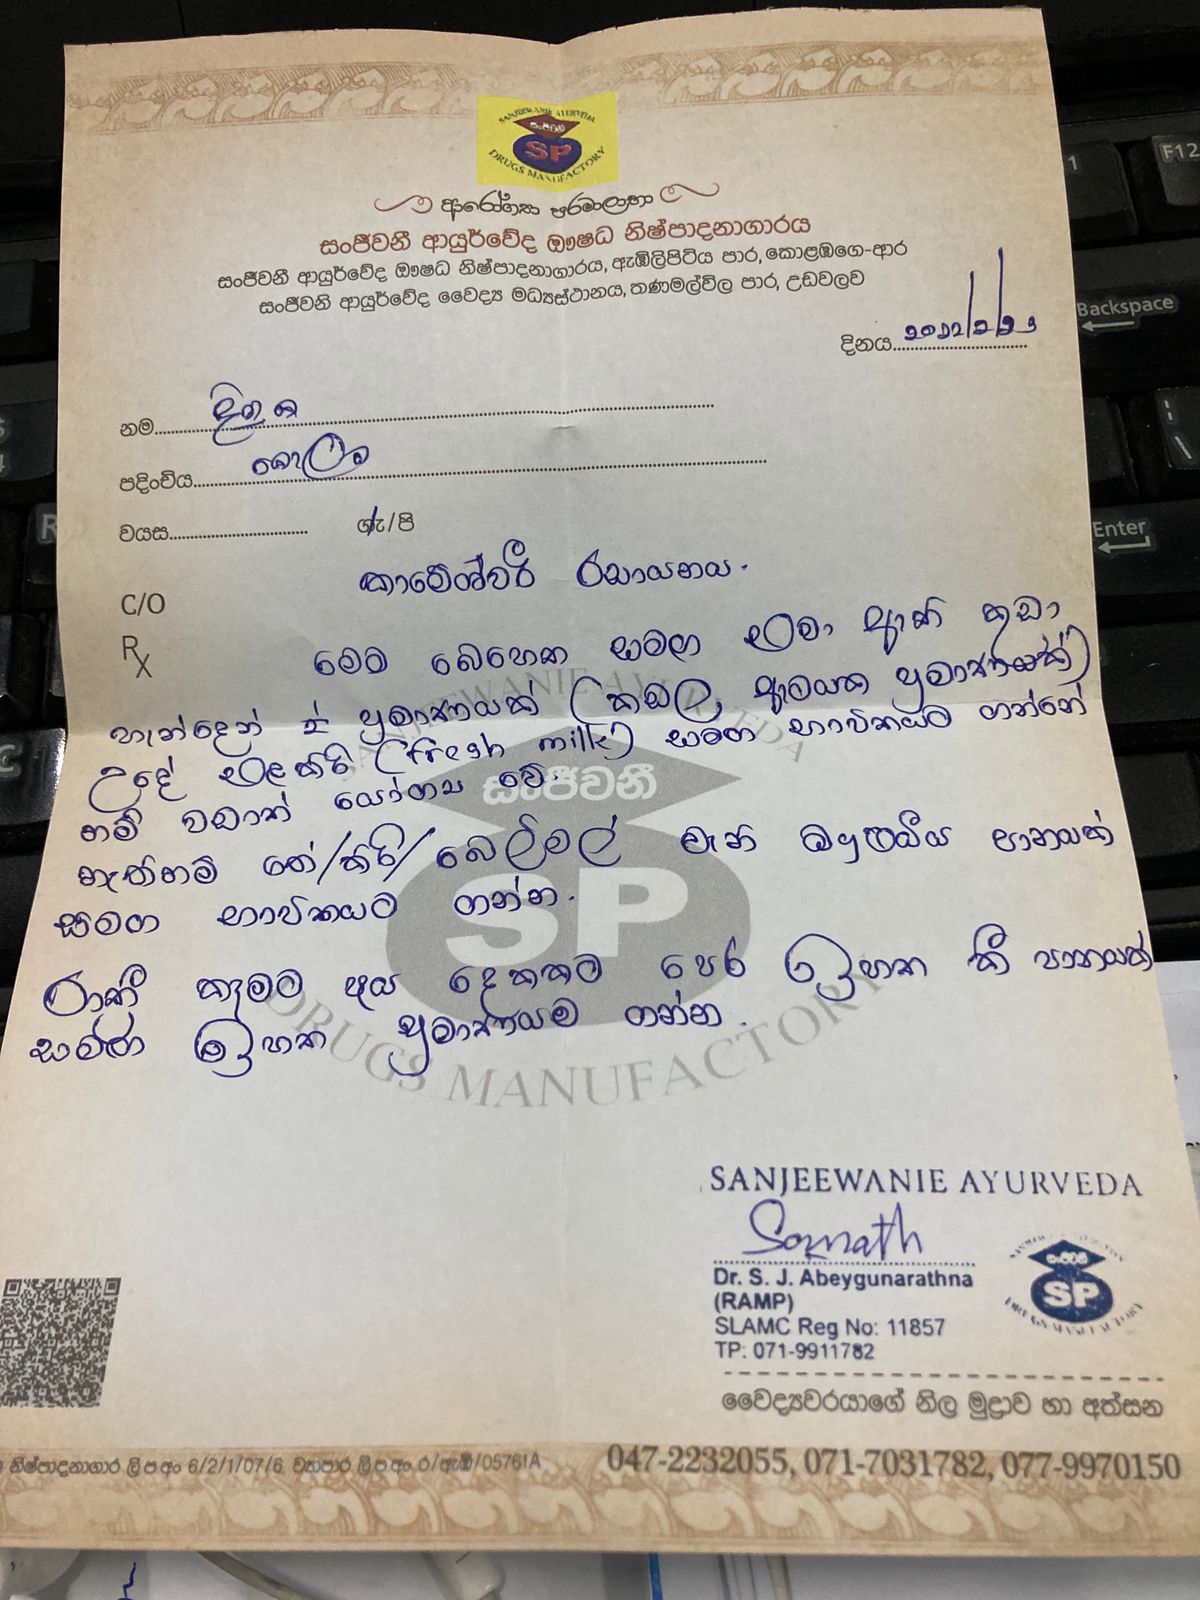 SANJEEWANIE AYURVEDA
සංජීවනී
SP
DRUGS MANUFACTORY
ආරෝග්‍යා පරමාලාභා
සංජීවනී ආයුර්වේද ඖෂධ නිෂ්පාදනාගාරය
සංජීවනී ආයුර්වේද ඖෂධ නිෂ්පාදනාගාරය, ඇඹිලිපිටිය පාර, කොළඹගෙ-ආර
සංජීවනී ආයුර්වේද වෛද්‍ය මධ්‍යස්ථානය, තණමල්විල පාර, උඩවලව
දිනය
නම
පදිංචිය
වයස ගැ/පි
කාමේශ්වරී රසායනය.
C/O
Rx
මෙම බෙහෙත සමඟ එවා ඇති කුඩා
හැන්දෙන් 1/2 ප්‍රමාණයක් (කඩල ඇටයක ප්‍රමාණයක්)
උදේ එළකිරි (fresh milk) සමඟ භාවිතයට ගන්නේ
නම් වඩාත් යෝග්‍ය වේ.
නැතිනම් තේ/කිරි/බෙලිමල් වැනි ඖෂධීය පානයක්
සමඟ භාවිතයට ගන්න.
රාත්‍රී කෑමට පැය දෙකකට පෙර ඉහත කී පානයක්
සමඟ ඉහත ප්‍රමාණයම ගන්න.
SANJEEWANIE AYURVEDA
සංජීවනී
SP
DRUGS MANUFACTORY
SANJEEWANIE AYURVEDA
Dr. S. J. Abeygunarathna
(RAMP)
SLAMC Reg No: 11857
TP: 071-9911782
SP
වෛද්‍යවරයාගේ නිල මුද්‍රාව හා අත්සන
නිෂ්පාදනාගාර ලි.ප.අං 6/2/1/07/6 ව්‍යාපාර ලි.ප.අං ර/ඇඹි/05761A
047-2232055, 071-7031782, 077-9970150
Backspace
Enter
F12